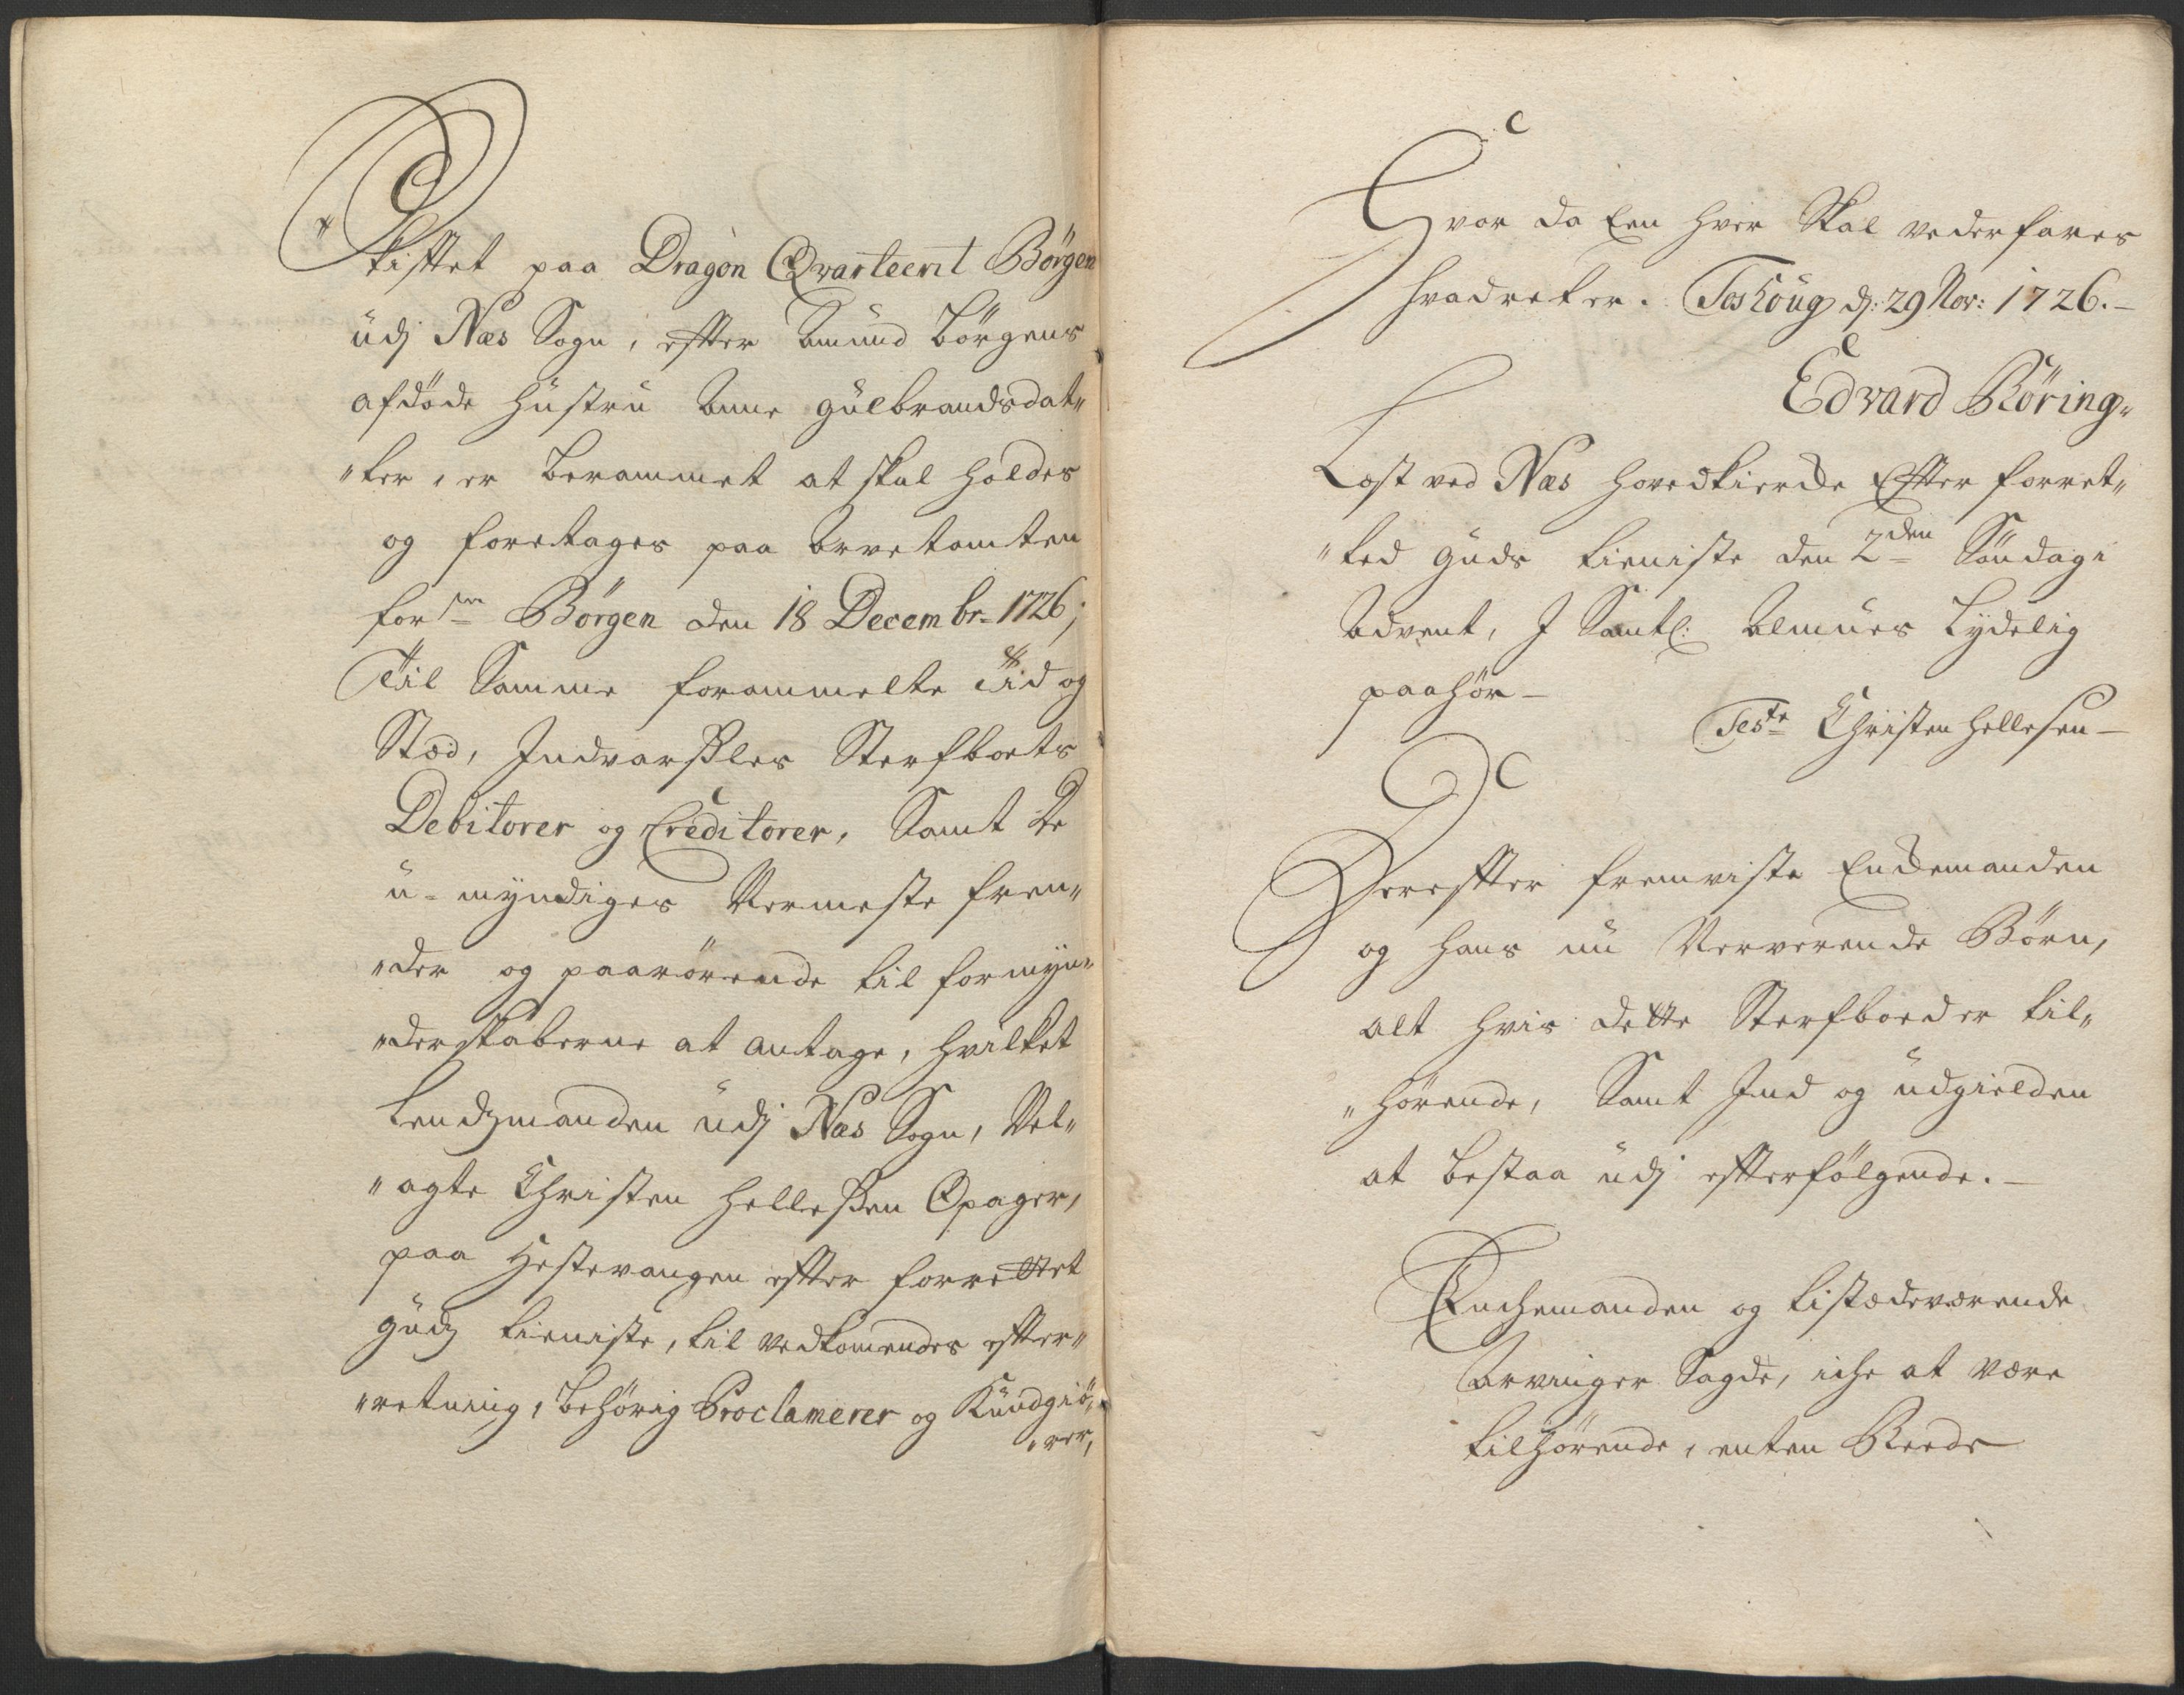 Skifftet paa Dragon Qvarteerit Börgen
udj Næs Sogn, effter Amund Börgens
afdöde Hustru Anne Gulbrandsdat„
„ter, er berammet at skal holdes
og foretages paa Arvetomten
for sm Börgen den 18 Decembr. 1726;
Til Samme forammelte Tid og
Stæd, Indvarsles Sterfboets
Debitorer og Creditorer, Samt de
u-myndiges Nermeste fren„
„der og paarörende til formyn„
„derskaberne at antage, hvilket
Lendzmanden udj Næs Sogn, Vel„
„agte Christen Hellesen Opager,
paa Hestevangen effter forrettet
Gudz tieniste, til vedkomendes effter„
„retning, behörig Proclamerer og Kundgiö„
„rer,
Hvor da Een hver Skal vederfares
hvad ret er. Foshoug dj: 29 Nov: 1726.–
Edvard Röring„
Læst ved Næs Hovedkierche Effter forret„
„ted Guds tieniste den 2den Söndag i
Advent, I Samtl: Almues Lydelig
paahör–
Teste Christen Hellesen–
Dereffter fremviste Enchemanden
og hans nu Nerverende Börn,
alt hvis dette Sterfboed er til„
„hörende, Samt Ind og udgielden
at bestaa udj effterfölgende.–
Enchemanden og tilstædeværende
Arvinger Sagde, iche at være
tilhörende, enten Reede